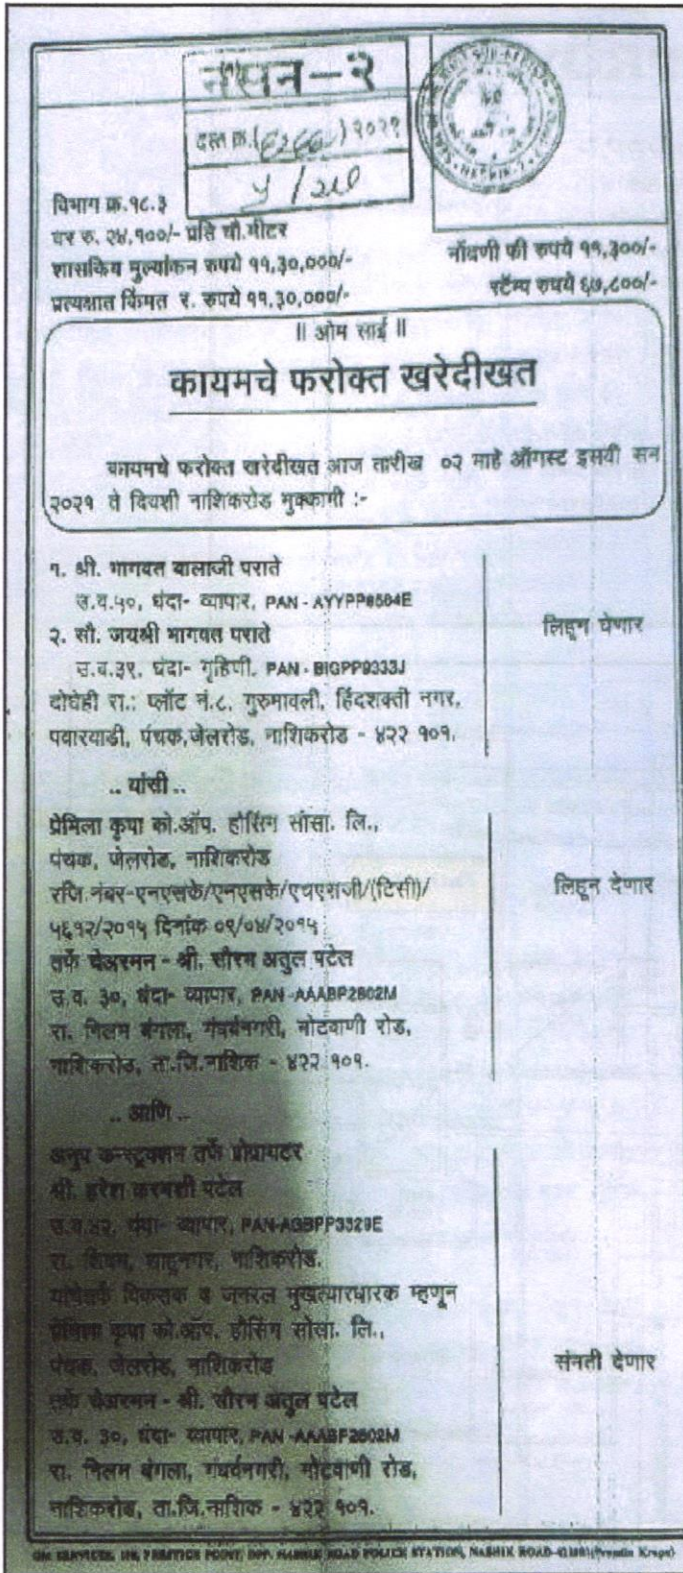 नसन-२
दस्त क्र.( ) २०२१
५ / २७
विभाग क्र.१८.३
दर रु. २४,१००/- प्रति चौ.मीटर
शासकिय मुल्यांकन रुपये ११,३०,०००/-
नोंदणी फी रुपये ११,३००/-
प्रत्यक्षात किंमत र. रुपये ११,३०,०००/-
स्टॅम्प रुपये ६७,८००/-
|| ओम साई ||
कायमचे फरोक्त खरेदीखत
कायमचे फरोक्त खरेदीखत आज तारीख ०२ माहे ऑगस्ट इसवी सन
२०२१ ते दिवशी नाशिकरोड मुक्कामी :-
१. श्री. भागवत बालाजी पराते
उ.व.५०, धंदा- व्यापार, PAN -
२. सौ. जयश्री भागवत पराते
उ.व.३९, धंदा- गृहिणी, PAN - BIGPP9333J
लिहून घेणार
दोघेही रा.: प्लॉट नं.८, गुरुमावली, हिंदशक्ती नगर,
पवारवाडी, पंचक,जेलरोड, नाशिकरोड - ४२२ १०१.
.. यांसी ..
प्रेमिला कृपा को.ऑप. हौसिंग सोसा. लि.,
पंचक, जेलरोड, नाशिकरोड
रजि.नंबर-एनएसके/एनएसके/एचएसजी/(टिसी)/
५६१२/२०१५ दिनांक ०९/०४/२०१५
तर्फे चेअरमन - श्री. सौरभ अतुल पटेल
उ.व. ३०, धंदा- व्यापार, PAN -AAABP2602M
रा. निलम बंगला, गंधर्वनगरी, मोटवाणी रोड,
नाशिकरोड, ता.जि.नाशिक - ४२२ १०१.
लिहून देणार
.. आणि ..
अनुप कन्स्ट्रक्शन तर्फे प्रोप्रायटर
श्री. हरेश करमशी पटेल
उ.व.४२, धंदा- व्यापार, PAN-AGBPP3329E
रा. शिवम, शाहूनगर, नाशिकरोड.
यांचेतर्फे विकसक व जनरल मुखत्यारधारक म्हणून
प्रेमिला कृपा को.ऑप. हौसिंग सोसा. लि.,
पंचक, जेलरोड, नाशिकरोड
तर्फे चेअरमन - श्री. सौरभ अतुल पटेल
उ.व. ३०, धंदा- व्यापार, PAN -AAABP2602M
रा. निलम बंगला, गंधर्वनगरी, मोटवाणी रोड,
नाशिकरोड, ता.जि.नाशिक - ४२२ १०१.
संमती देणार
OM SERVICES, PRESTIGE POINT, OPP. NASHIK ROAD POLICE STATION, NASHIK ROAD-422101